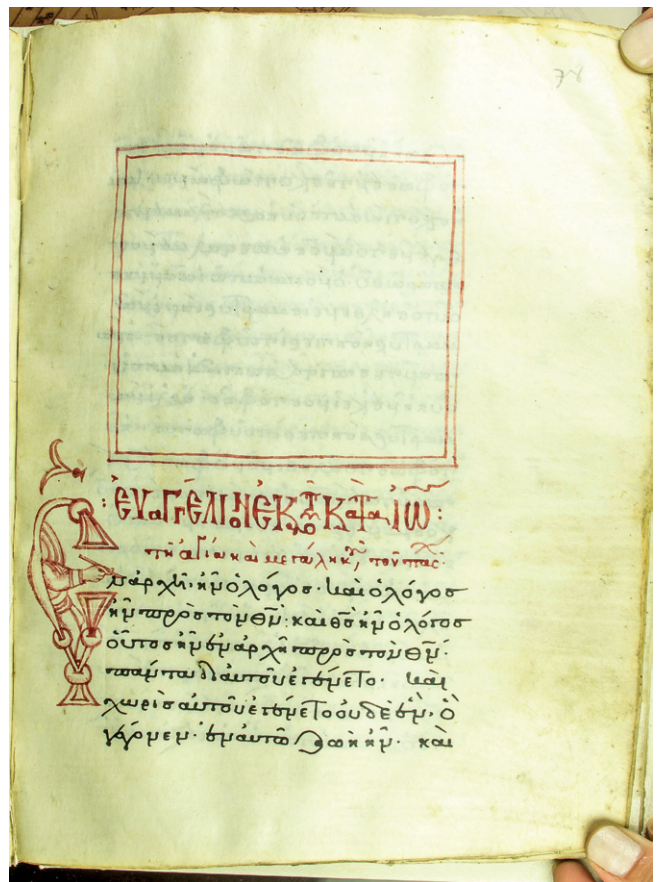 ἐυαγγέλιον ἐκ τοῦ κατὰ ἰω :
τῇ ἁγία καὶ μεγάλη κυ, τοῦ πασ.
ν ἀρχῆ· ἦν ὁ λόγος· καὶ ὁ λόγος
ἦν πρὸς τὸν θν· καὶ θς ἦν ὁ λόγος
οὗτος ἦν ἐν ἀρχῆ πρὸς τὸν θν·
πάντα δι αυτοῦ ἐγένετο· καὶ
χωρὶς αυτοῦ ἐγένετο οὐδὲ ἕν· ὃ
γέγονεν· ἐν αυτῶ ζωὴ ἦν· καὶ